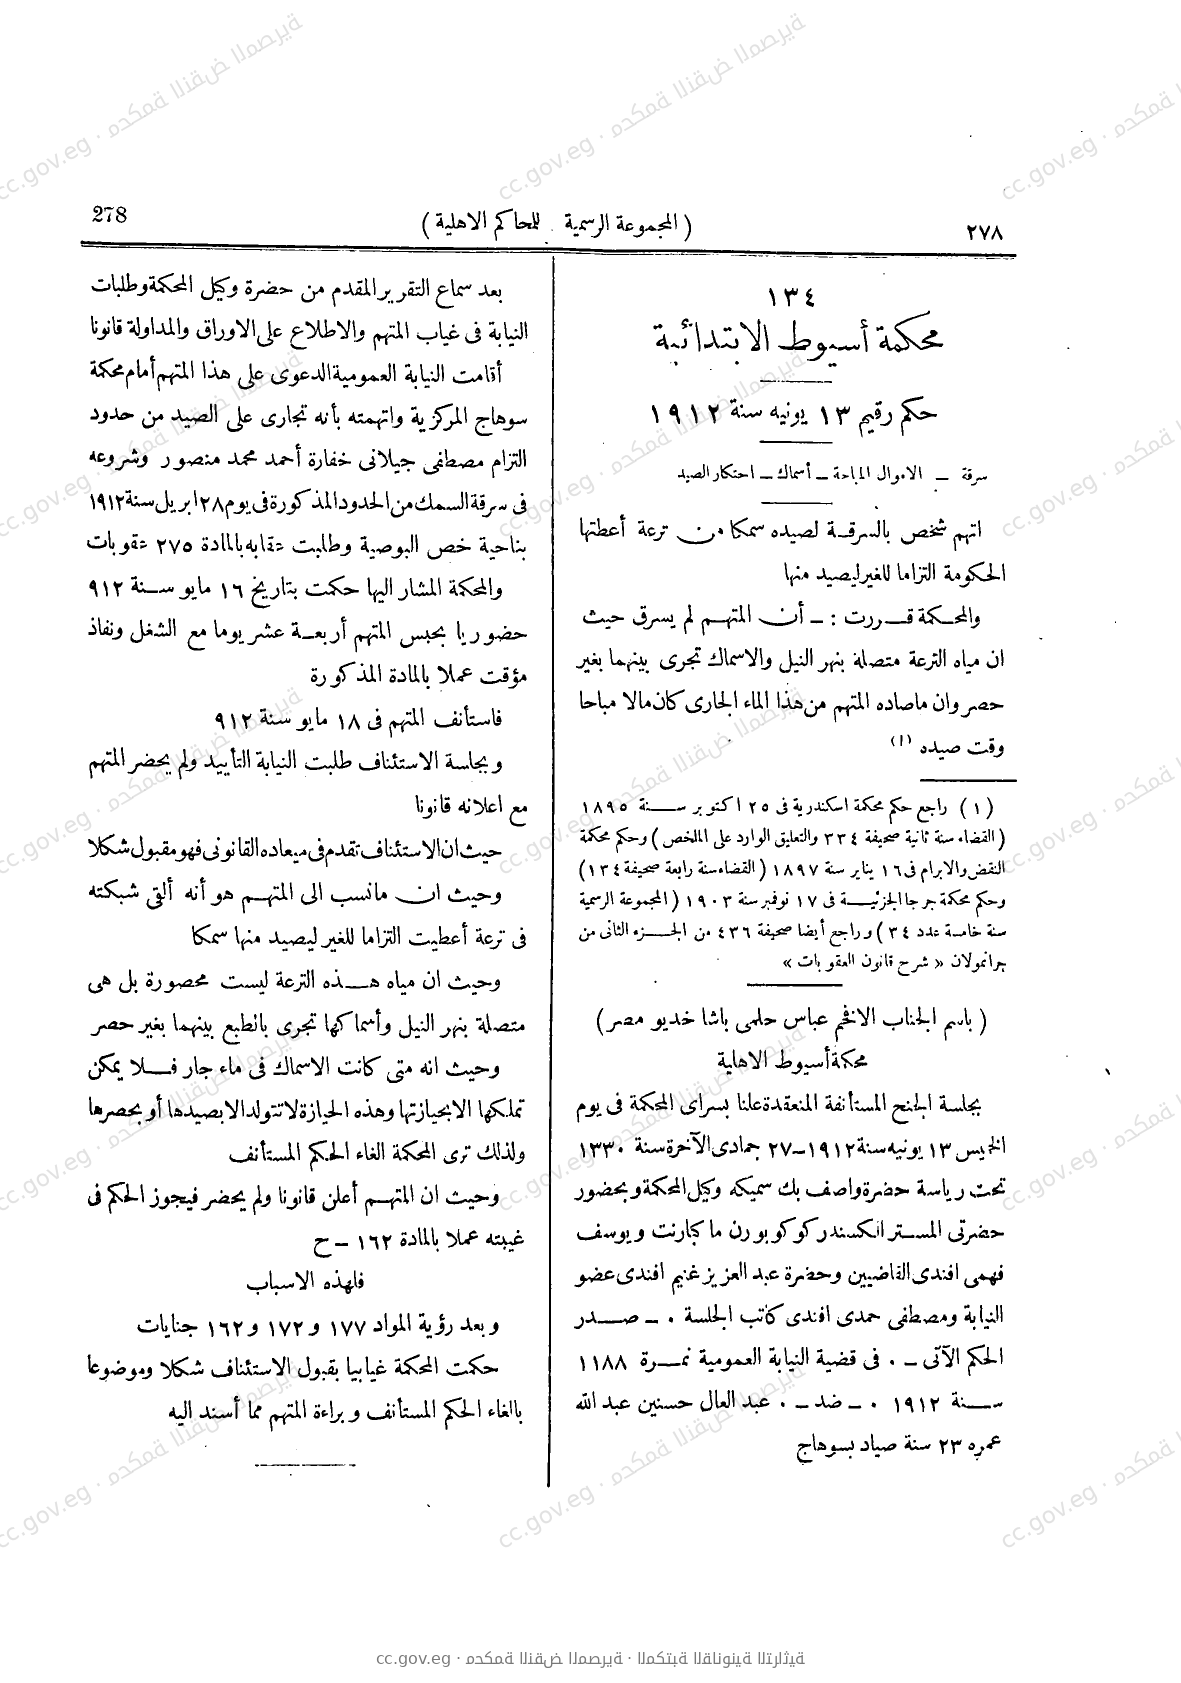 278
( المجموعة الرسمية للمحاكم الاهلية )
٢٧٨
١٣٤
محكمة أسيوط الابتدائية
حكم رقيم ١٣ يونيه سنة ١٩١٢
سرقة – الاموال المباحة – أسماك – احتكار الصيد
اتهم شخص بالسرقة لصيده سمكا من ترعة أعطتها
الحكومة التزاما للغير ليصيد منها
والمحكمة قررت : – أن المتهم لم يسرق حيث
ان مياه الترعة متصلة بنهر النيل والاسماك تجرى بينهما بغير
حصر وان ماصاده المتهم من هذا الماء الجارى كان مالا مباحا
وقت صيده (١)
(١) راجع حكم محكمة اسكندرية فى ٢٥ اكتوبر سنة ١٨٩٥
(القضاء سنة ثانية صحيفة ٣٣٤ والتعليق الوارد على الملخص) وحكم محكمة
النقض والابرام فى ١٦ يناير سنة ١٨٩٧ (القضاء سنة رابعة صحيفة ١٣٤)
وحكم محكمة جرجا الجزئية فى ١٧ نوفمبر سنة ١٩٠٣ (المجموعة الرسمية
سنة خامسة عدد ٣٤) وراجع أيضا صحيفة ٤٣٦ من الجزء الثانى من
جرانمولان « شرح قانون العقوبات »
( باسم الجناب الافخم عباس حلمى باشا خديو مصر )
محكمة أسيوط الاهلية
بجلسة الجنح المستأنفة المنعقدة علنا بسراى المحكمة فى يوم
الخميس ١٣ يونيه سنة ١٩١٢ – ٢٧ جمادى الآخرة سنة ١٣٣٠
تحت رياسة حضرة واصف بك سميكه وكيل المحكمة وبحضور
حضرتى المستر الكسندر كوكوبورن ماكبارنت ويوسف
فهمى افندى القاضيين وحضرة عبد العزيز غنيم افندى عضو
النيابة ومصطفى حمدى افندى كاتب الجلسة ٠ – صدر
الحكم الآتى – ٠ فى قضية النيابة العمومية نمرة ١١٨٨
سنة ١٩١٢ ٠ – ضد – ٠ عبد العال حسنين عبد الله
عمره ٢٣ سنة صياد بسوهاج
بعد سماع التقرير المقدم من حضرة وكيل المحكمة وطلبات
النيابة فى غياب المتهم والاطلاع على الاوراق والمداولة قانونا
أقامت النيابة العمومية الدعوى على هذا المتهم أمام محكمة
سوهاج المركزية واتهمته بأنه تجارى على الصيد من حدود
التزام مصطفى جيلانى خفارة أحمد محمد منصور وشروعه
فى سرقة السمك من الحدود المذكورة فى يوم ٢٨ ابريل سنة ١٩١٢
بناحية خص البوصية وطلبت عقابه بالمادة ٢٧٥ عقوبات
والمحكمة المشار اليها حكمت بتاريخ ١٦ مايو سنة ٩١٢
حضوريا بحبس المتهم أربعة عشر يوما مع الشغل ونفاذ
مؤقت عملا بالمادة المذكورة
فاستأنف المتهم فى ١٨ مايو سنة ٩١٢
وبجلسة الاستئناف طلبت النيابة التأييد ولم يحضر المتهم
مع اعلانه قانونا
حيث ان الاستئناف تقدم فى ميعاده القانونى فهو مقبول شكلا
وحيث ان مانسب الى المتهم هو أنه ألقى شبكته
فى ترعة أعطيت التزاما للغير ليصيد منها سمكا
وحيث ان مياه هذه الترعة ليست محصورة بل هى
متصلة بنهر النيل وأسماكها تجرى بالطبع بينهما بغير حصر
وحيث انه متى كانت الاسماك فى ماء جار فلا يمكن
تملكها الا بحيازتها وهذه الحيازة لا تتولد الا بصيدها أو بحصرها
ولذلك ترى المحكمة الغاء الحكم المستأنف
وحيث ان المتهم أعلن قانونا ولم يحضر فيجوز الحكم فى
غيبته عملا بالمادة ١٦٢ – ح
فلهذه الاسباب
وبعد رؤية المواد ١٧٧ و ١٧٢ و ١٦٢ جنايات
حكمت المحكمة غيابيا بقبول الاستئناف شكلا وموضوعا
بالغاء الحكم المستأنف وبراءة المتهم مما أسند اليه
cc.gov.eg · محكمة النقض المصرية · المكتبة القانونية التراثية